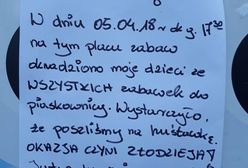 W dniu 05.04.18 r ok g. 17³⁰
na tym placu zabaw
okradziono moje dzieci ze
WSZYSTKICH zabawek do
piaskownicy. Wystarczyło,
że poszliśmy na huśtawkę.
OKAZJA CZYNI ZŁODZIEJA!